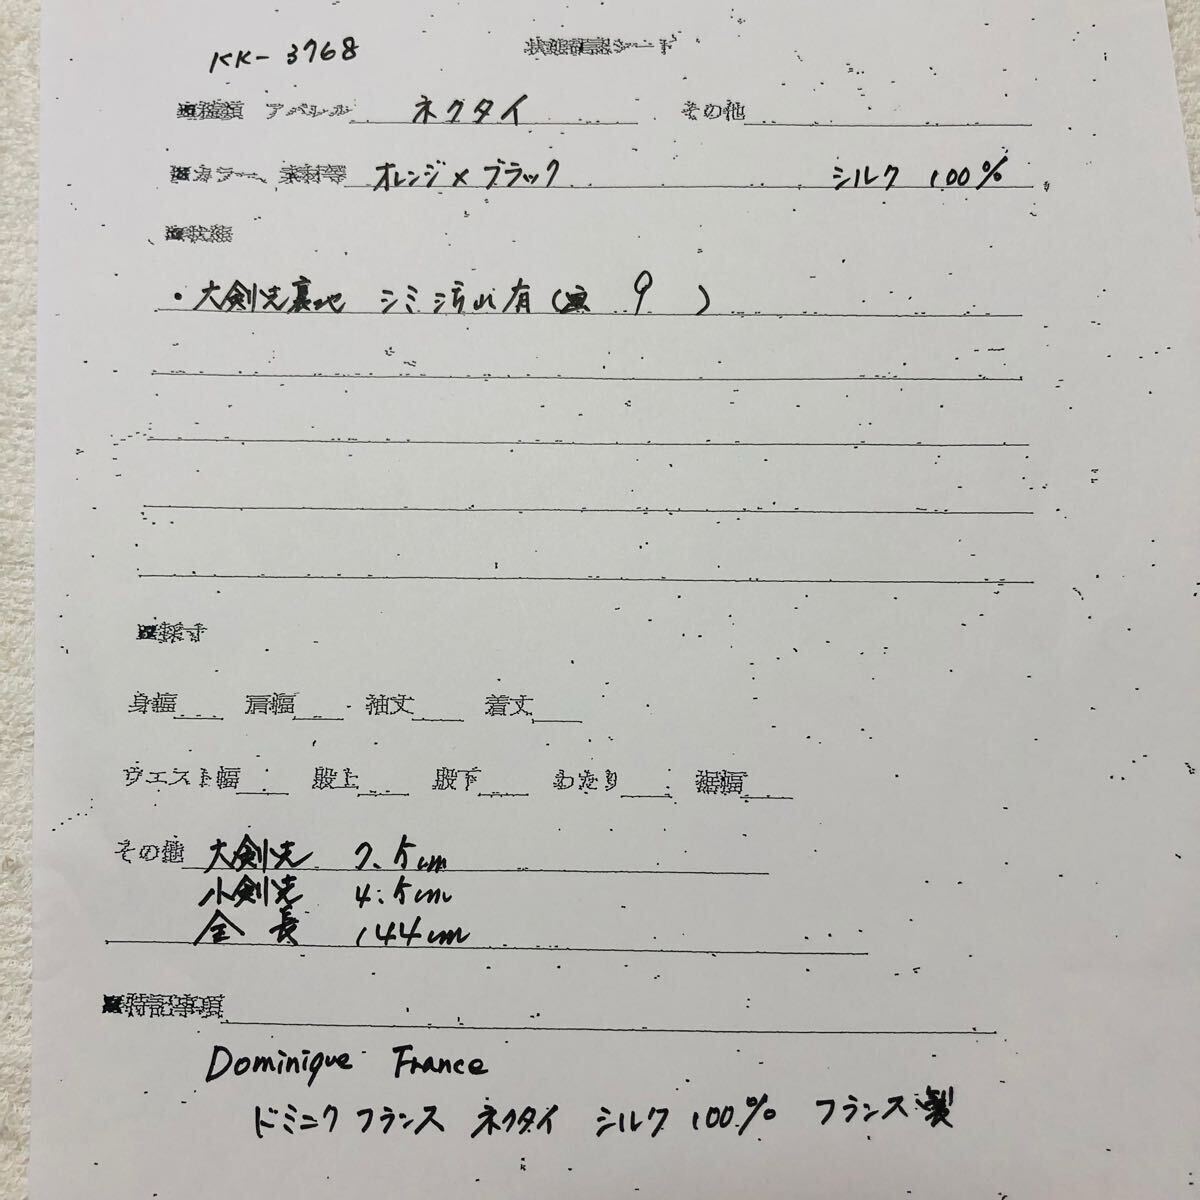 KK-3768 状態確認シート
■種類 アパレル ネクタイ その他
■カラー、素材等 オレンジ×ブラック シルク 100%
■状態
・大剣先裏地 シミ汚れ有( 9 )
■採寸
身幅 肩幅 袖丈 着丈
ウエスト幅 股上 股下 わたり 裾幅
その他 大剣先 7.5cm
小剣先 4.5cm
全長 144cm
■特記事項
Dominique France
ドミニク フランス ネクタイ シルク 100% フランス製